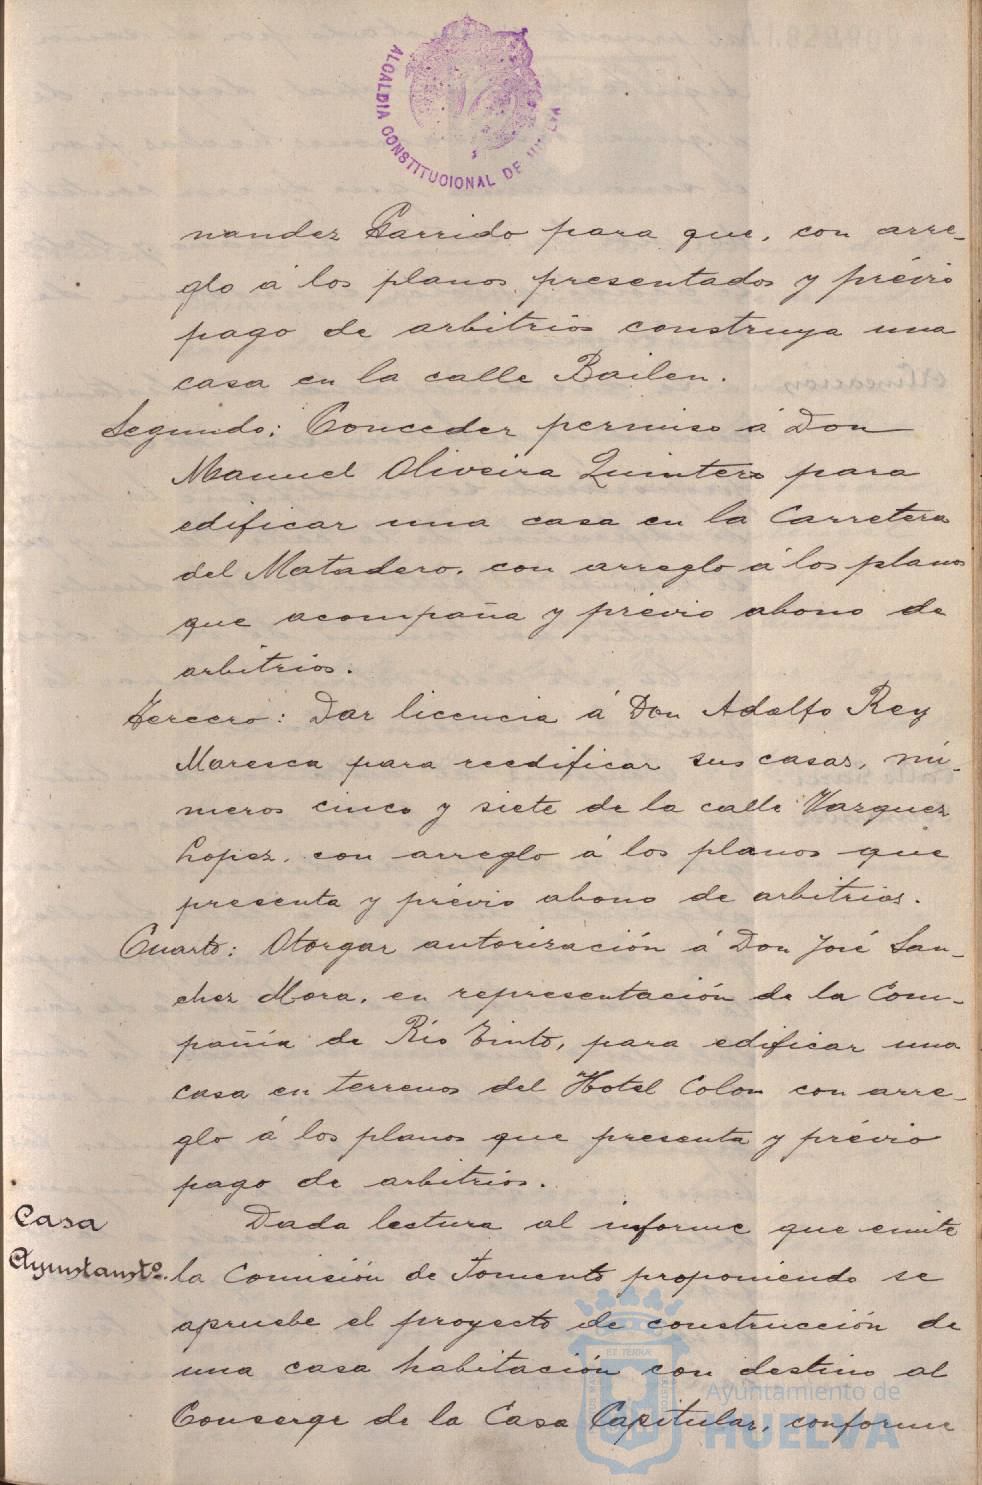 ALCALDIA CONSTITUCIONAL DE HUELVA
nandez Garrido para que, con arre-
glo á los planos presentados y prévio
pago de arbitrios construya una
casa en la calle Bailen.
Segundo: Conceder permiso á Don
Manuel Oliveira Quintero para
edificar una casa en la Carretera
del Matadero, con arreglo á los planos
que acompaña y prévio abono de
arbitrios.
Tercero: Dar licencia á Don Adolfo Rey
Maresca para reedificar sus casas, nú-
meros cinco y siete de la calle Vazquez
Lopez, con arreglo á los planos que
presenta y prévio abono de arbitrios.
Cuarto: Otorgar autorización á Don José San-
chez Mora, en representación de la Com-
pañía de Río Tinto, para edificar una
casa en terrenos del Hotel Colon con arre-
glo á los planos que presenta y prévio
pago de arbitrios.
Casa
Ayuntamtº.
Dada lectura al informe que emite
la Comisión de Fomento proponiendo se
apruebe el proyecto de construcción de
una casa habitación con destino al
Conserge de la Casa Capitular, conforme
Ayuntamiento de
HUELVA